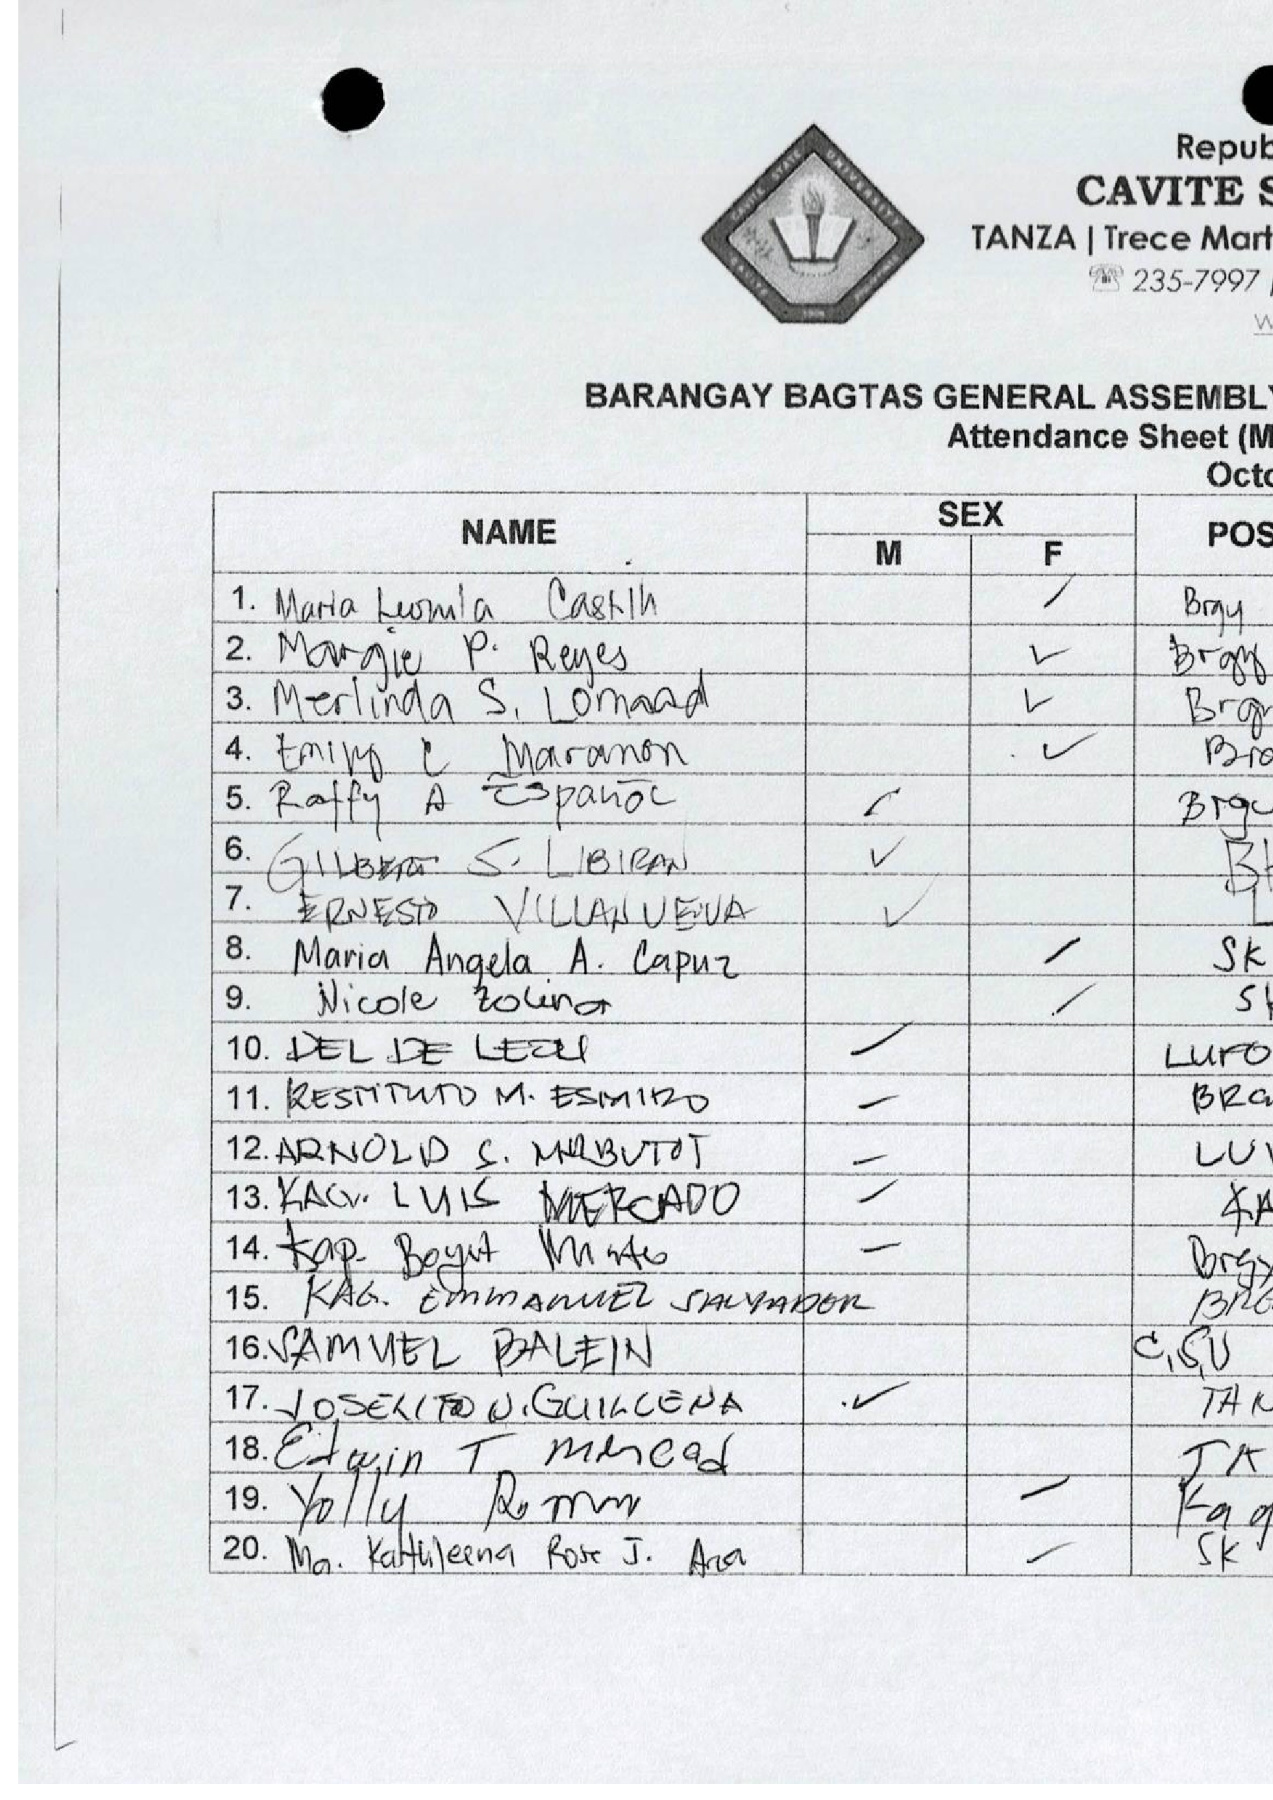 CAVITE STATE UNIVERSITY
Repub
CAVITE S
TANZA | Trece Mart
235-7997
W
BARANGAY BAGTAS GENERAL ASSEMBLY
Attendance Sheet (M
Octo
NAME SEX POS
M F
1. Maria Castillo Brgy
2. Margie P. Reyes Brgy
3. Merlinda S. Brgy
4. Emily C Maranon
5. Raffy A Español Brgy
6. GILBERT S. LIBIRAN BH
7. ERNESTO VILLANUEVA
8. Maria Angela A. Capuz SK
9. Nicole Zolina SK
10. DEL DE LEON LUPO
11. RESTITUTO M. ESMIRO BRG
12. ARNOLD S.
13. KAG. LUIS MERCADO KA
14. Kap. Brgy
15. KAG. EMMANUEL SALVADOR BRG
16. SAMUEL BALEIN C.S.U
17. JOSELITO N. GUILLCENA TAN
18. Edwin T. TA
19. Yolly Kag
20. Ma. Kathleena Rose J. SK